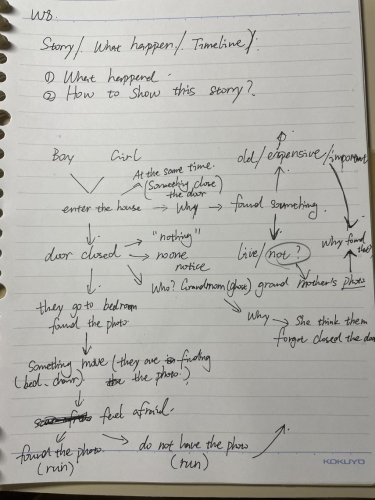 W8.
Storry/. What happen/. Timeline/.
① What happend.
② How to show this storry?
Boy Girl
At the same time.
(Something close
the door)
old/expensive/important
enter the house → Why → found something.
door closed → "nothing"
no one
notice
live/not?
why found the
Who? Grandmom(ghost) grand mother's photo
they go to bedroom
found the photo.
Why → She think them
forgot closed the door
Something move (they are finding
(bed. chair) the photo.)
feel afraid.
found the photo.
(run)
do not have the photo
(run)
KOKUYO